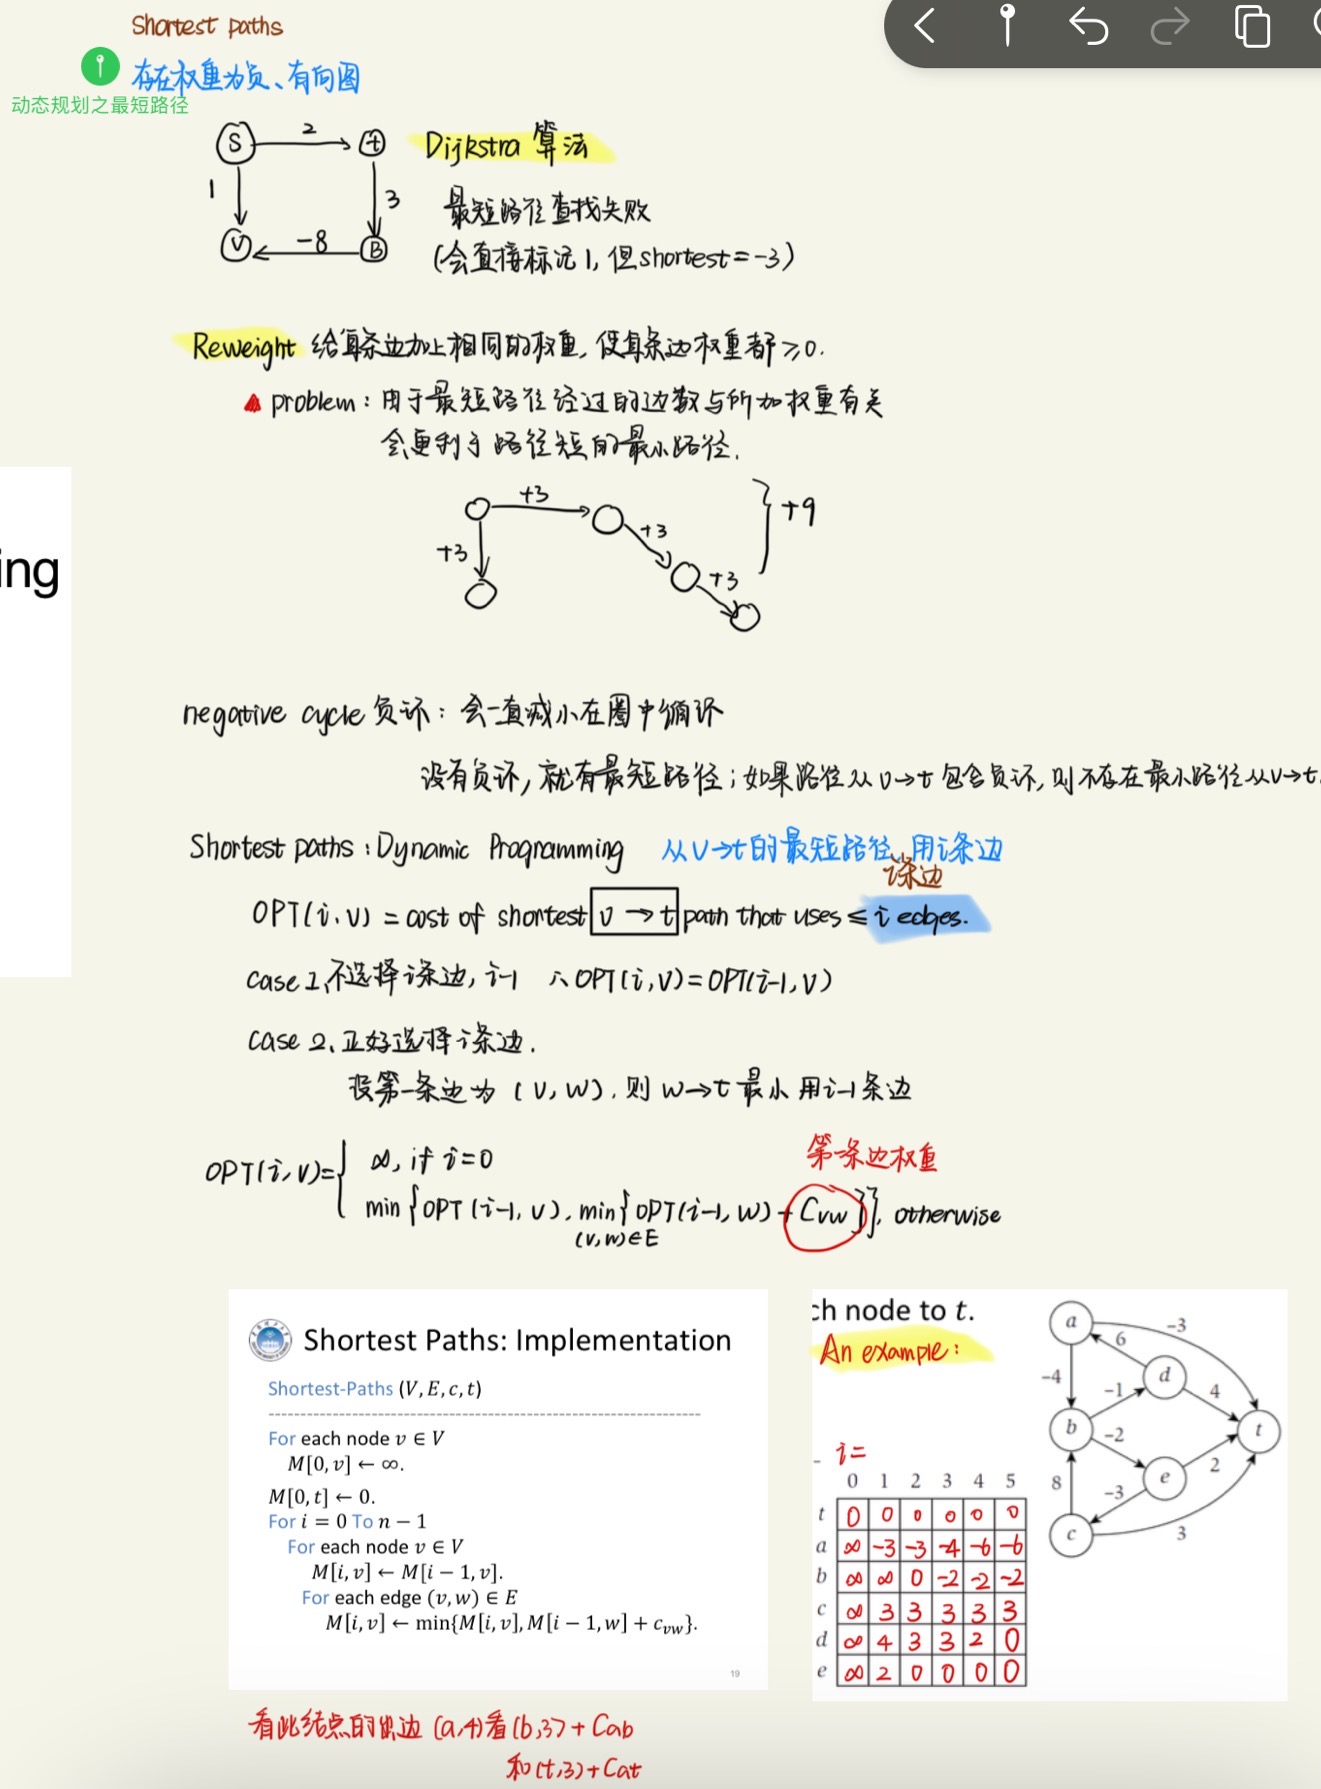 Shortest paths
存在权重为负、有向图
动态规划之最短路径
S 2 t
1 3
V -8 B
Dijkstra 算法
最短路径查找失败
(会直接标记1, 但shortest=-3)
Reweight 给每条边加上相同的权重, 使每条边权重都≥0.
problem: 由于最短路径经过的边数与所加权重有关
会更利于路径短的最小路径.
+3
+3
+3
+3
+9
ing
negative cycle 负环: 会一直减小在圈中循环
没有负环, 就有最短路径; 如果路径从v→t包含负环, 则不存在最小路径从v→t.
Shortest paths: Dynamic Programming 从v→t的最短路径, 用i条边
i条边
OPT(i,v) = cost of shortest v→t path that uses ≤ i edges.
case 1、不选择i条边, i-1 ∴OPT(i,v)=OPT(i-1,v)
case 2、正好选择i条边.
设第一条边为 (v,w), 则 w→t 最小 用i-1条边
第一条边权重
OPT(i,v)={ ∞, if i=0
min{OPT(i-1,v), min{OPT(i-1,w)+Cvw}}, otherwise
(v,w)∈E
Shortest Paths: Implementation
Shortest-Paths (V, E, c, t)
For each node v ∈ V
M[0, v] ← ∞.
M[0, t] ← 0.
For i = 0 To n − 1
For each node v ∈ V
M[i, v] ← M[i − 1, v].
For each edge (v, w) ∈ E
M[i, v] ← min{M[i, v], M[i − 1, w] + cvw}.
19
ch node to t.
An example:
i=
0 1 2 3 4 5
t 0 0 0 0 0 0
a ∞ -3 -3 -4 -6 -6
b ∞ ∞ 0 -2 -2 -2
c ∞ 3 3 3 3 3
d ∞ 4 3 3 2 0
e ∞ 2 0 0 0 0
a -3
6
-4 d
-1 4
b -2 t
8 e 2
-3
c 3
看此结点的出边 (a,4)看(b,3)+Cab
和(t,3)+Cat